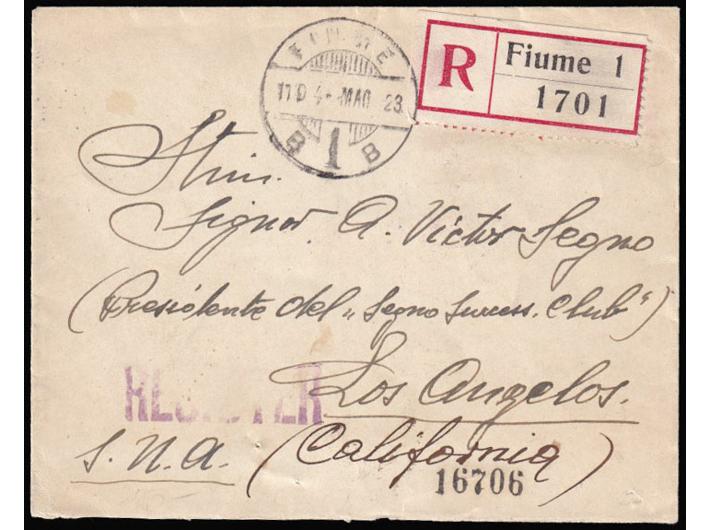 FIUME
11D 4-MAG 23
B 1 B
R Fiume 1
1701
Stim.
Signor A. Victor Segno
(Presidente del „Segno Success. Club")
REGISTER
Los Angelos.
S.U.A. (California)
16706